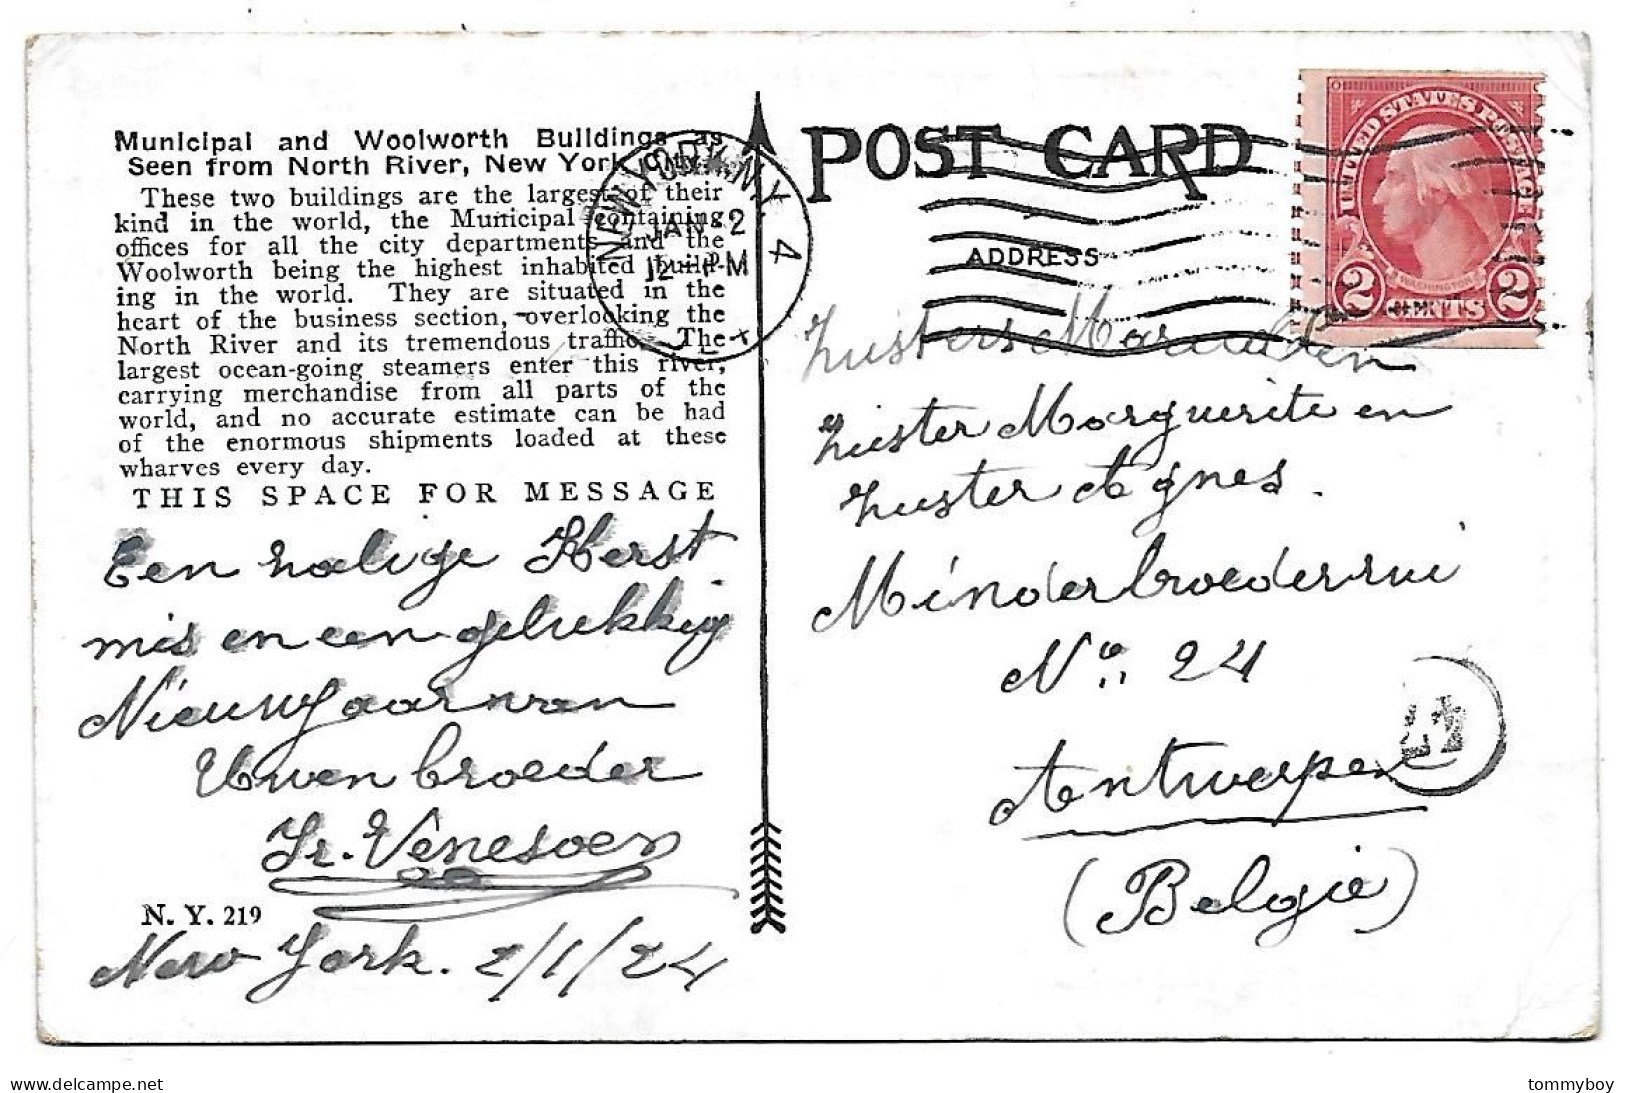 Municipal and Woolworth Buildings as
Seen from North River, New York City.
These two buildings are the largest of their
kind in the world, the Municipal containing
offices for all the city departments and the
Woolworth being the highest inhabited build-
ing in the world. They are situated in the
heart of the business section, overlooking the
North River and its tremendous traffic. The
largest ocean-going steamers enter this river,
carrying merchandise from all parts of the
world, and no accurate estimate can be had
of the enormous shipments loaded at these
wharves every day.
THIS SPACE FOR MESSAGE
Een zalige Kerst
mis en een gelukkig
Nieuwjaar van
Uwen broeder
Fr. Venesoen
N. Y. 219
New York. 2/1/24
NEW YORK, N.Y. 4
JAN 2
12 - PM
POST CARD
ADDRESS
UNITED STATES POSTAGE
WASHINGTON
2 CENTS 2
Zusters Maria
Zuster Marguerite en
Zuster Agnes.
Minderbroederrui
No. 24
Antwerpen
(Belgie)
tommyboy
www.delcampe.net